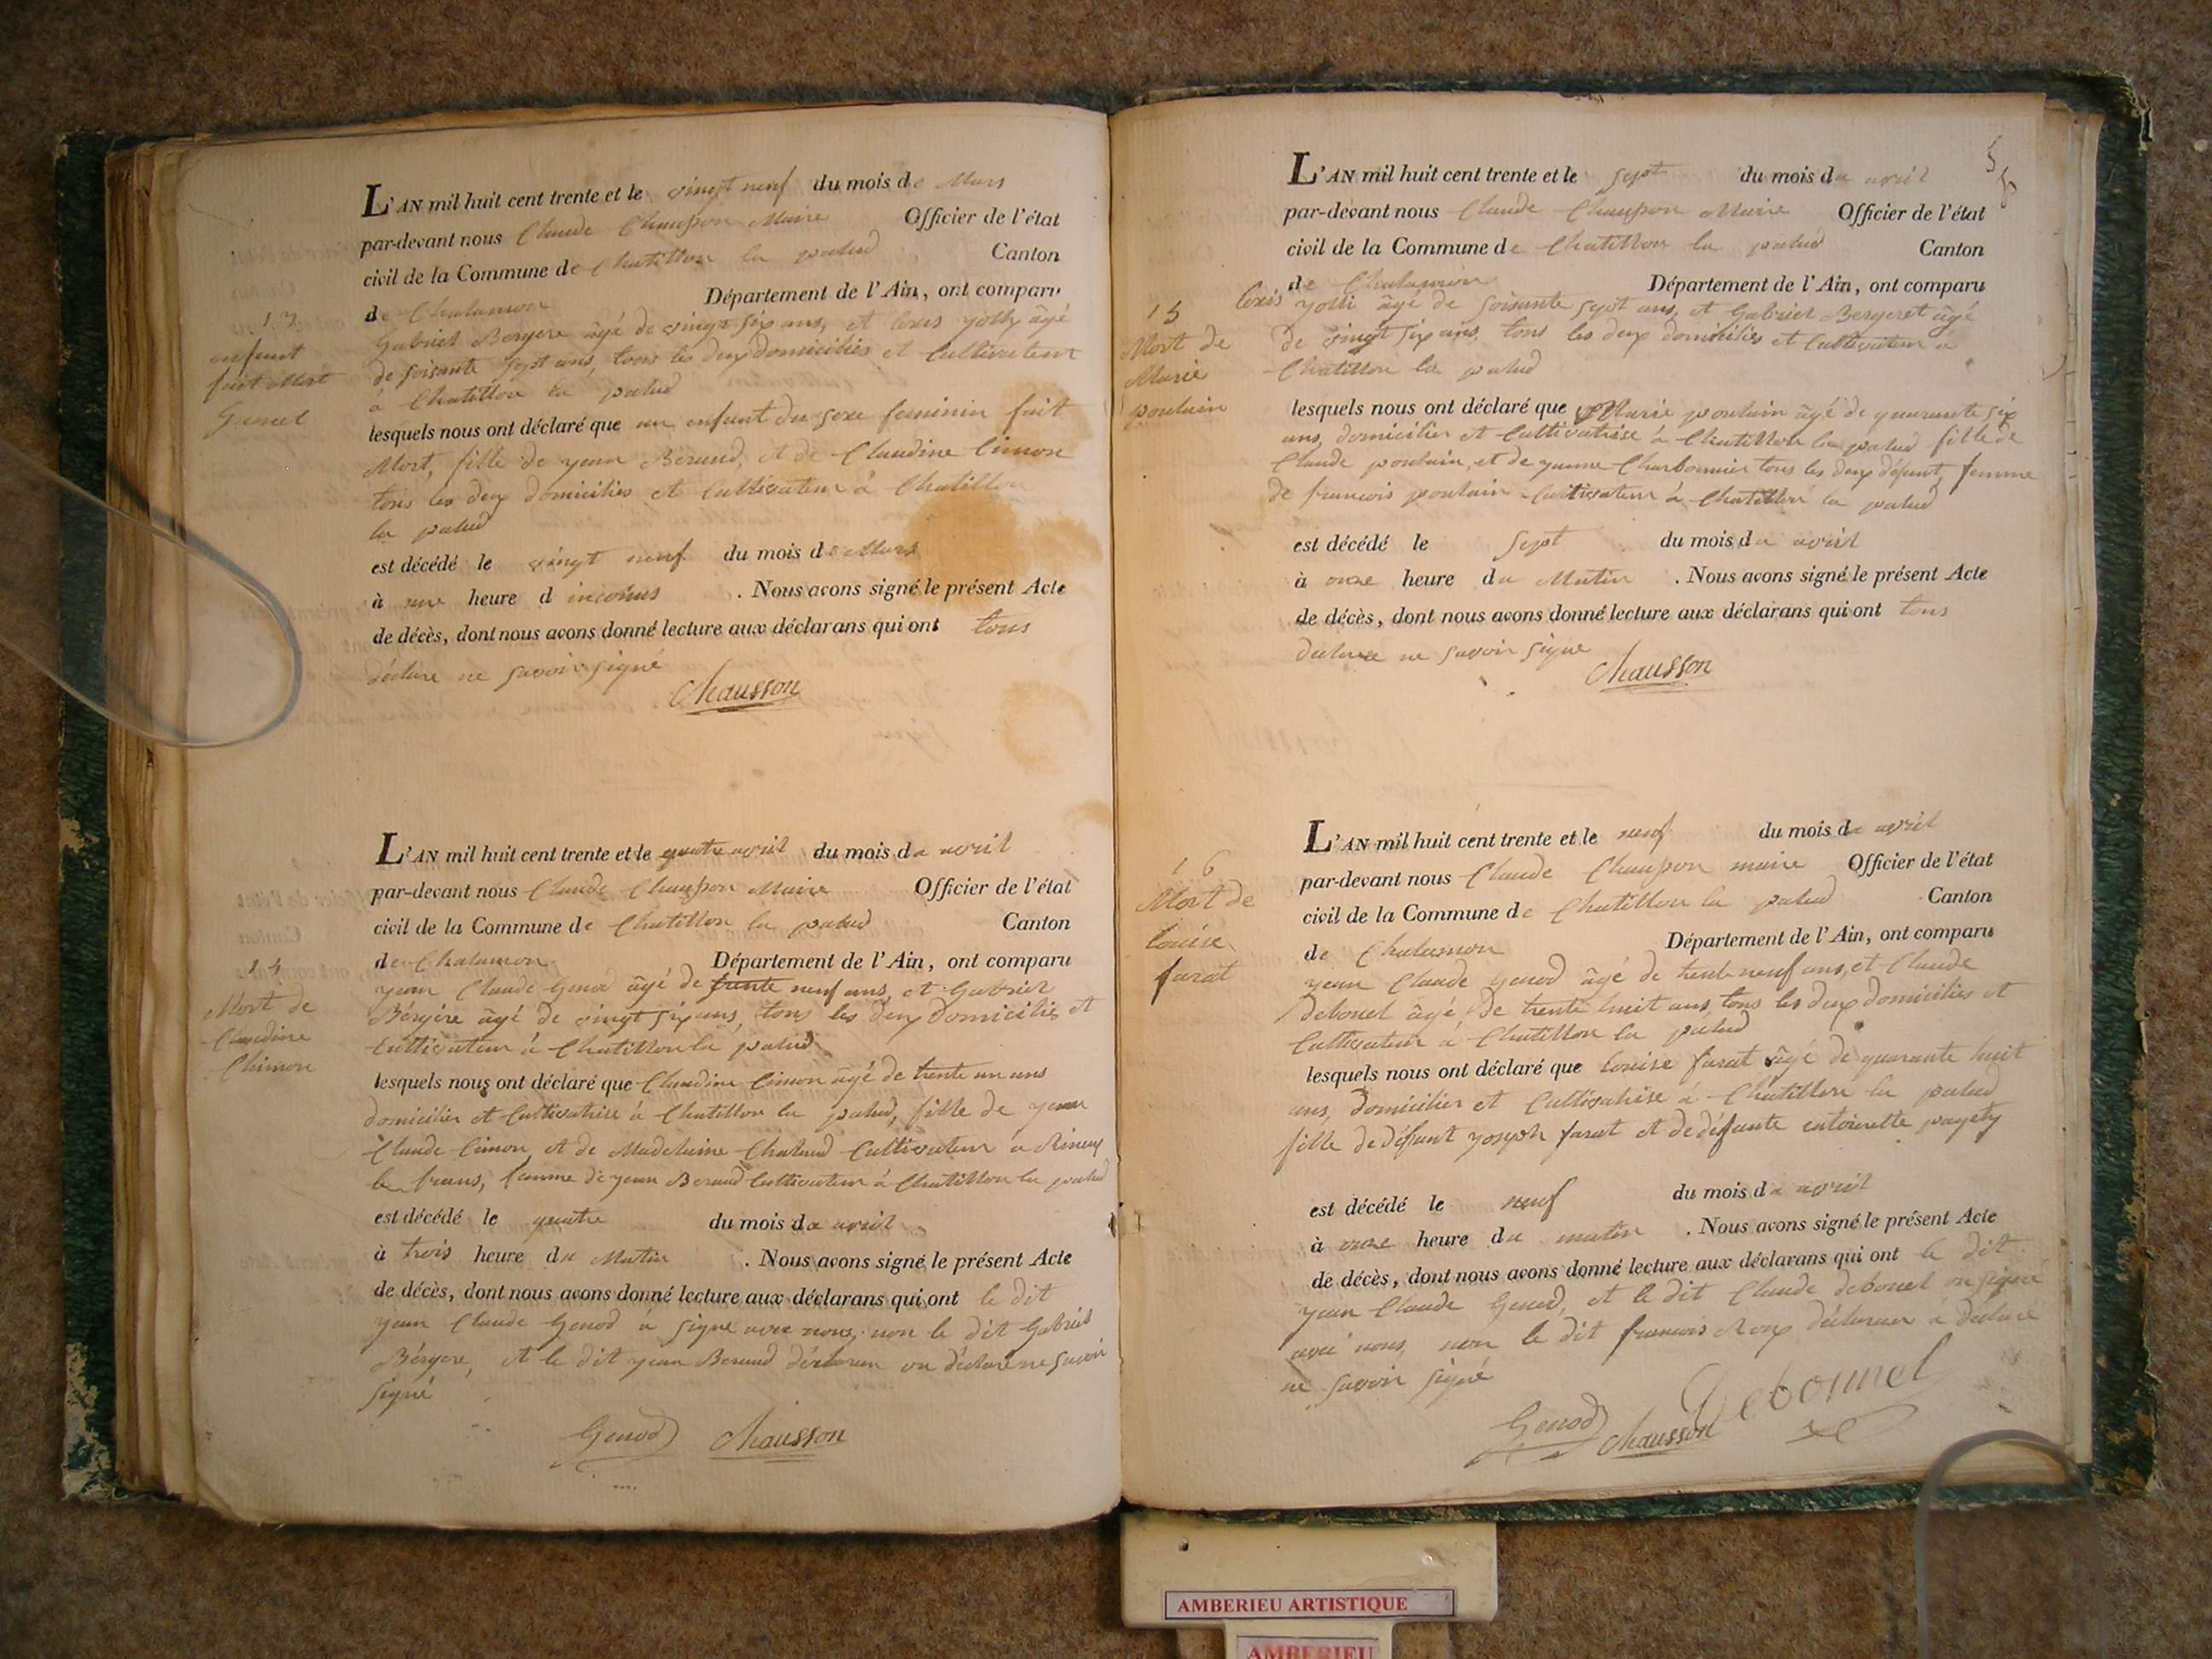 L'AN mil huit cent trente et le vingt neuf du mois de Mars
par-devant nous Claude Chausson Maire Officier de l'état
civil de la Commune de Chatillon la palud Canton
de Chalamon Département de l'Ain, ont comparu
Gabriel Bergere âgé de vingt six ans, et Louis yolly âgé
de soisante sept ans, tous les deux domiciliés et Cultivateur
à Chatillon la palud
lesquels nous ont déclaré que un enfant du sexe feminin fait
Mort, fille de yean Beraud, et de Claudine Cimon
tous les deux domiciliés et Cultivateur à Chatillon
la palud
est décédé le vingt neuf du mois de Mars
à une heure d inconus . Nous avons signé le présent Acte
de décès, dont nous avons donné lecture aux déclarans qui ont tous
déclare ne savoir signé
Chausson
13
enfant
fait Mort
L'AN mil huit cent trente et le quatre avril du mois da avril
par-devant nous Claude Chausson Maire Officier de l'état
civil de la Commune de Chatillon la palud Canton
de Chalamon Département de l'Ain, ont comparu
yean Claude Genod âgé de trente neuf ans, et Gabriel
Bérgére âgé de vingt six ans, tous les deux domiciliés et
Cultivateur à Chatillon la palud
lesquels nous ont déclaré que Claudine Cimon âgé de trente un ans
domicilier et Cultivatrise à Chatillon la palud, fille de yean
Claude Cimon, et de Madelaine Chatard Cultivateur a
le frans, famme de yean Beraud Cultivateur à Chatillon la palud
est décédé le quatre du mois da avril
à trois heure du Matin . Nous avons signé le présent Acte
de décès, dont nous avons donné lecture aux déclarans qui ont le dit
yean Claude Genod a signe avec nous, non le dit Gabriel
Bérgere, et le dit yean Beraud déclaran on déclare ne savoir
signé
Genod Chausson
14
Mort de
Claudine
Chimon
L'AN mil huit cent trente et le sept du mois da avril
par-devant nous Claude Chausson Maire Officier de l'état
civil de la Commune de Chatillon la palud Canton
de Chalamon Département de l'Ain, ont comparu
Louis yolli âgé de soisante sept ans, et Gabriel Bergeret âgé
de vingt six ans, tous les deux domiciliés et Cultivateur a
Chatillon la palud
lesquels nous ont déclaré que Marie poulain âgé de quarante six
ans, domicilier et Cultivatrise à Chatillon la palud fille de
Claude poulain, et de yeanne Charbonnier tous les deux défunt, femme
de francois poulain Cultivateur à Chatillon la palud
est décédé le sept du mois da avril
à onze heure du Matin . Nous avons signé le présent Acte
de décès, dont nous avons donné lecture aux déclarans qui ont tous
declare ne savoir signe
Chausson
15
Mort de
Marie
poulain
L'AN mil huit cent trente et le neuf du mois de avril
par-devant nous Claude Chausson maire Officier de l'état
civil de la Commune de Chatillon la palud Canton
de Chalamon Département de l'Ain, ont comparu
yean Claude Genod âgé de trente neuf ans, et Claude
debonel âgé de trente huit ans, tous les deux domiciliés et
Cultivateur à Chatillon la palud
lesquels nous ont déclaré que Louise farat âgé de quarante huit
ans, domicilier et Cultivatrise à Chatillon la palud
fille de défunt yoseph farat et de défunte entoinette
est décédé le neuf du mois da avril
à onze heure du matin . Nous avons signé le présent Acte
de décès, dont nous avons donné lecture aux déclarans qui ont le dit
yean Claude Genod, et le dit Claude debonel on signé
avec nous, non le dit francois Roux déclaran a declare
ne savoir signé
Genod Chausson Debonnel
16
Mort de
Louise
farat
AMBERIEU ARTISTIQUE
AMBERIEU